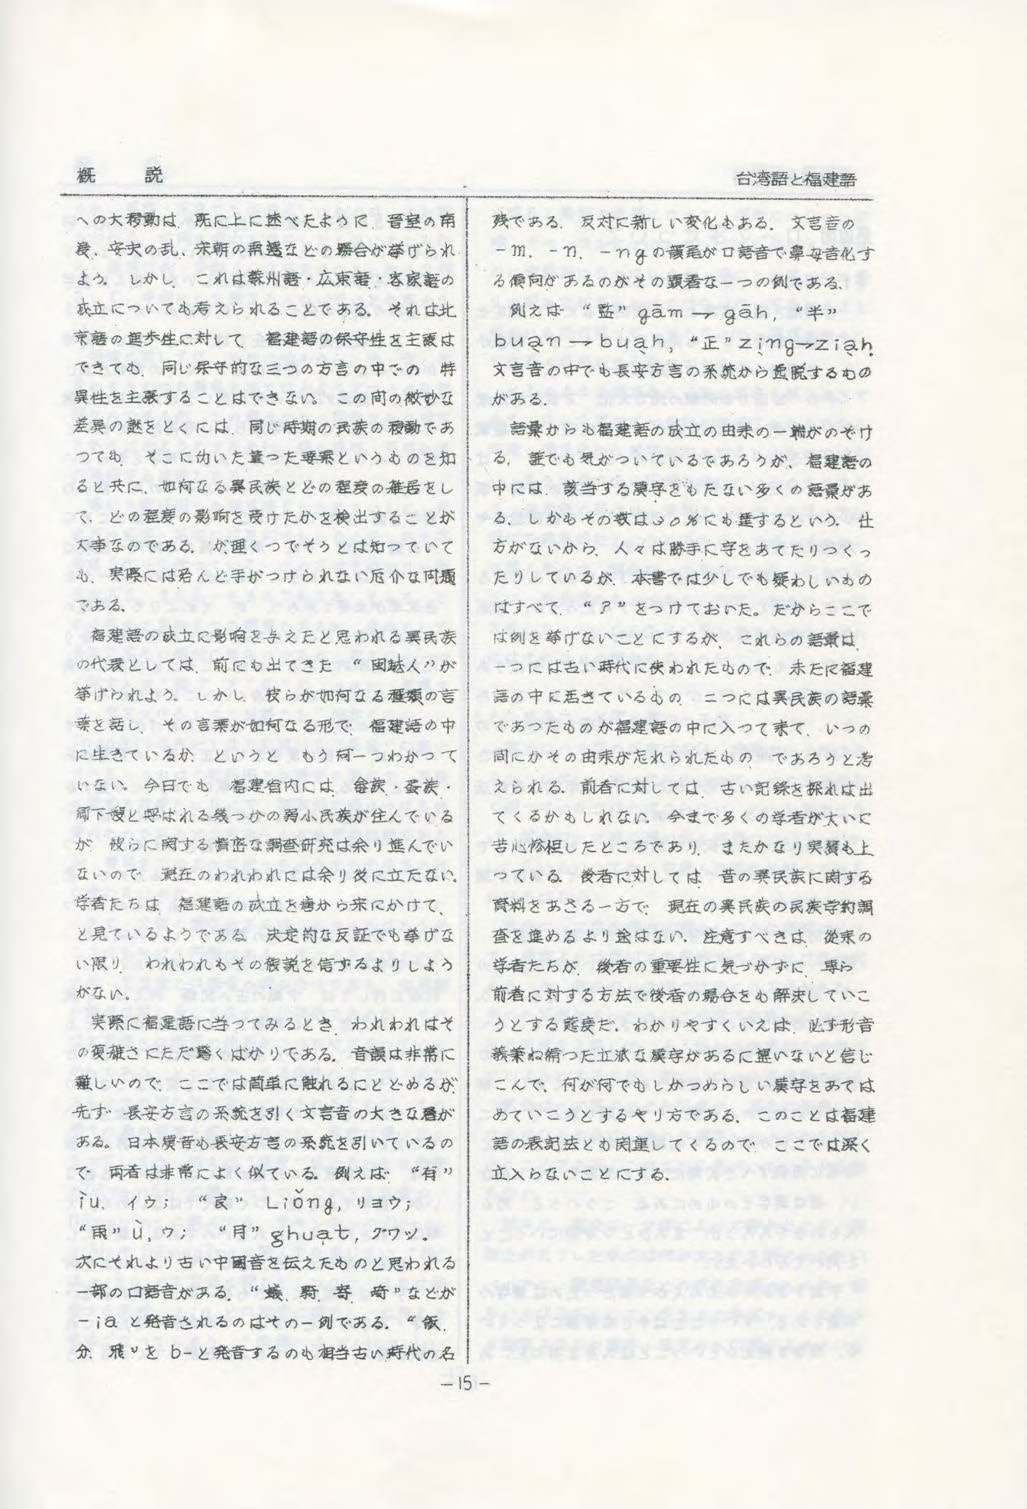 概　説
台湾語と福建語
への大移動は、既に上に述べたように、晋室の南
渡、安史の乱、宋朝の南遷などの場合が挙げられ
よう。しかし、これは蘇州語・広東語・客家語の
成立についても考えられることである。それは北
京語の進歩性に対して、福建語の保守性を主張は
できても、同じ保守的な三つの方言の中での、特
異性を主張することはできない。この間の微妙な
差異の謎をとくには、同じ時期の民族の移動であ
つても、そこに働いた違った要素というものを知
ると共に、如何なる異民族とどの程度の雑居をし
て、どの程度の影響を受けたかを検出することが
大事なのである。が、理くつでそうとは知っていて
も、実際には殆んど手がつけられない厄介な問題
である。
福建語の成立に影響を与えたと思われる異民族
の代表としては、前にも出てきた“閩越人”が
挙げられよう。しかし、彼らが如何なる種類の言
葉を話し、その言葉が如何なる形で、福建語の中
に生きているか、というと、もう何一つわかって
いない。今日でも、福建省内には、畲族・蛋族・
と呼ばれる幾つかの弱小民族が住んでいる
が、彼らに関する精密な調査研究は余り進んでい
ないので、現在のわれわれには余り役に立たない。
学者たちは、福建語の成立を唐から宋にかけて、
と見ているようである。決定的な反証でも挙げな
い限り、われわれもその仮説を信ずるよりしよう
がない。
実際に福建語に当ってみるとき、われわれはそ
の複雑さにただ驚くばかりである。音韻は非常に
難しいので、ここでは簡単に触れるにとどめるが、
先ず、長安方言の系統を引く文言音の大きな層が
ある。日本漢音も長安方言の系統を引いているの
で、両者は非常によく似ている。例えば、“有”
ìu, イウ；“良” Liǒng, リヨウ；
“雨” ù, ウ；“月” ghuạt, グワツ。
次にそれより古い中国音を伝えたものと思われる
一部の口語音がある。“蟻、騎、寄、奇”などが
－ia と発音されるのはその一例である。“飯、
分、飛”を b-と発音するのも相当古い時代の名
残である。反対に新しい変化もある。文言音の
－m、－n、－ng の韻尾が口語音で鼻母音化す
る傾向があるのがその顕著な一つの例である。
例えば “監” gām → gāh, “半”
buạn → buạh, “正” zịng → ziạh.
文言音の中でも長安方言の系統から逸脱するもの
がある。
語彙からも福建語の成立の由来の一端がのぞけ
る。誰でも気がついているであろうが、福建語の
中には、該当する漢字をもたない多くの語彙があ
る。しかもその数は30％にも達するという。仕
方がないから、人々は勝手に字をあてたりつくっ
たりしているが、本書では少しでも疑わしいもの
はすべて、“？”をつけておいた。だからここで
は例を挙げないことにするが、これらの語彙は、
一つには古い時代に使われたもので、未だに福建
語の中に活きているもの、二つには異民族の語彙
であつたものが福建語の中に入つて来て、いつの
間にかその由来が忘れられたもの、であろうと考
えられる。前者に対しては、古い記録を探れば出
てくるかもしれない。今まで多くの学者が大いに
苦心惨担したところであり、またかなり実績も上
つている。後者に対しては、昔の異民族に関する
資料をあさる一方で、現在の異民族の民族学的調
査を進めるより途はない。注意すべきは、従来の
学者たちが、後者の重要性に気づかずに、専ら
前者に対する方法で後者の場合をも解決していこ
うとする態度だ。わかりやすくいえば、必ず形音
義兼ね備つた立派な漢字があるに違いないと信じ
こんで、何が何でもしかつめらしい漢字をあては
めていこうとするやり方である。このことは福建
語の表記法とも関連してくるので、ここでは深く
立入らないことにする。
－15－